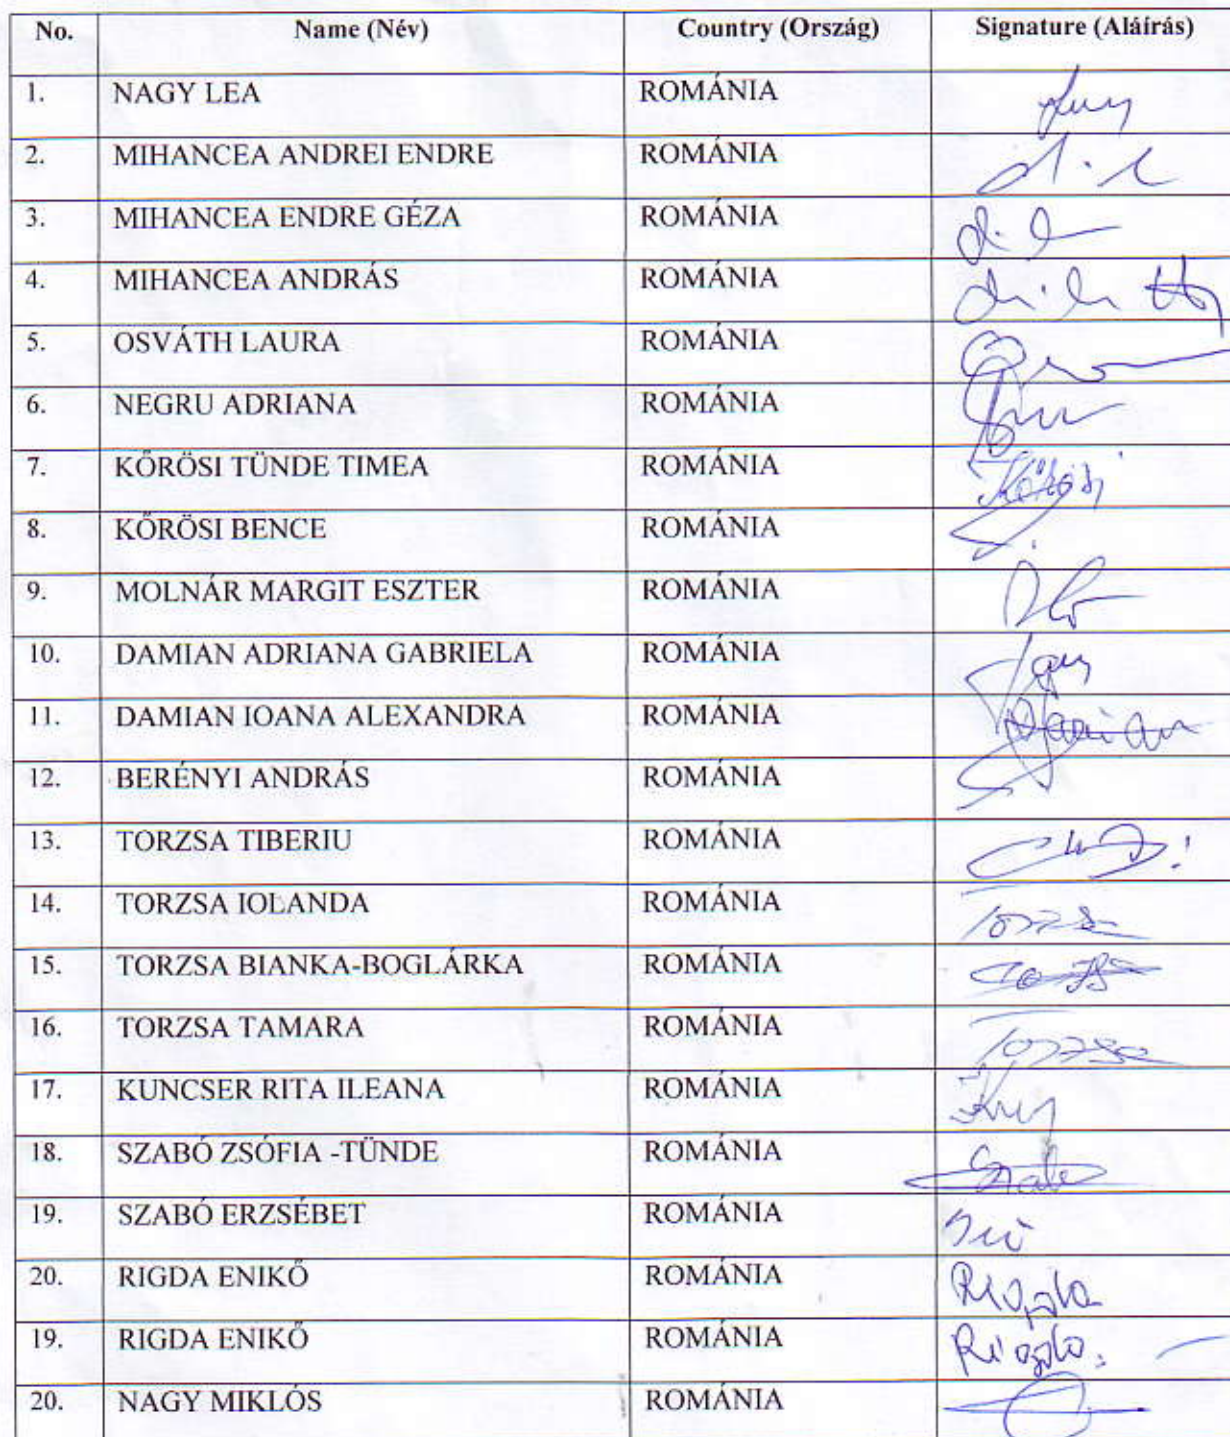 No. Name (Név) Country (Ország) Signature (Aláírás)
1. NAGY LEA ROMÁNIA
2. MIHANCEA ANDREI ENDRE ROMÁNIA
3. MIHANCEA ENDRE GÉZA ROMÁNIA
4. MIHANCEA ANDRÁS ROMÁNIA
5. OSVÁTH LAURA ROMÁNIA
6. NEGRU ADRIANA ROMÁNIA
7. KŐRÖSI TÜNDE TIMEA ROMÁNIA
8. KŐRÖSI BENCE ROMÁNIA
9. MOLNÁR MARGIT ESZTER ROMÁNIA
10. DAMIAN ADRIANA GABRIELA ROMÁNIA
11. DAMIAN IOANA ALEXANDRA ROMÁNIA
12. BERÉNYI ANDRÁS ROMÁNIA
13. TORZSA TIBERIU ROMÁNIA
14. TORZSA IOLANDA ROMÁNIA
15. TORZSA BIANKA-BOGLÁRKA ROMÁNIA
16. TORZSA TAMARA ROMÁNIA
17. KUNCSER RITA ILEANA ROMÁNIA
18. SZABÓ ZSÓFIA -TÜNDE ROMÁNIA
19. SZABÓ ERZSÉBET ROMÁNIA
20. RIGDA ENIKŐ ROMÁNIA
19. RIGDA ENIKŐ ROMÁNIA
20. NAGY MIKLÓS ROMÁNIA